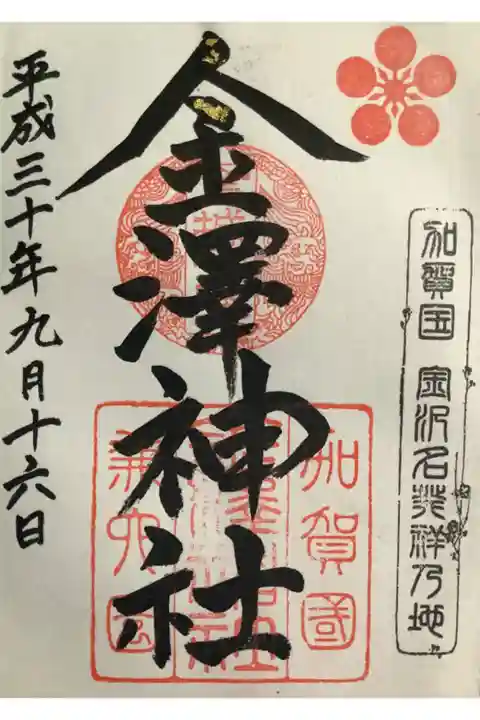 加賀国 金沢名発祥乃地
金澤神社
加賀國
金澤神社
兼六園
平成三十年九月十六日